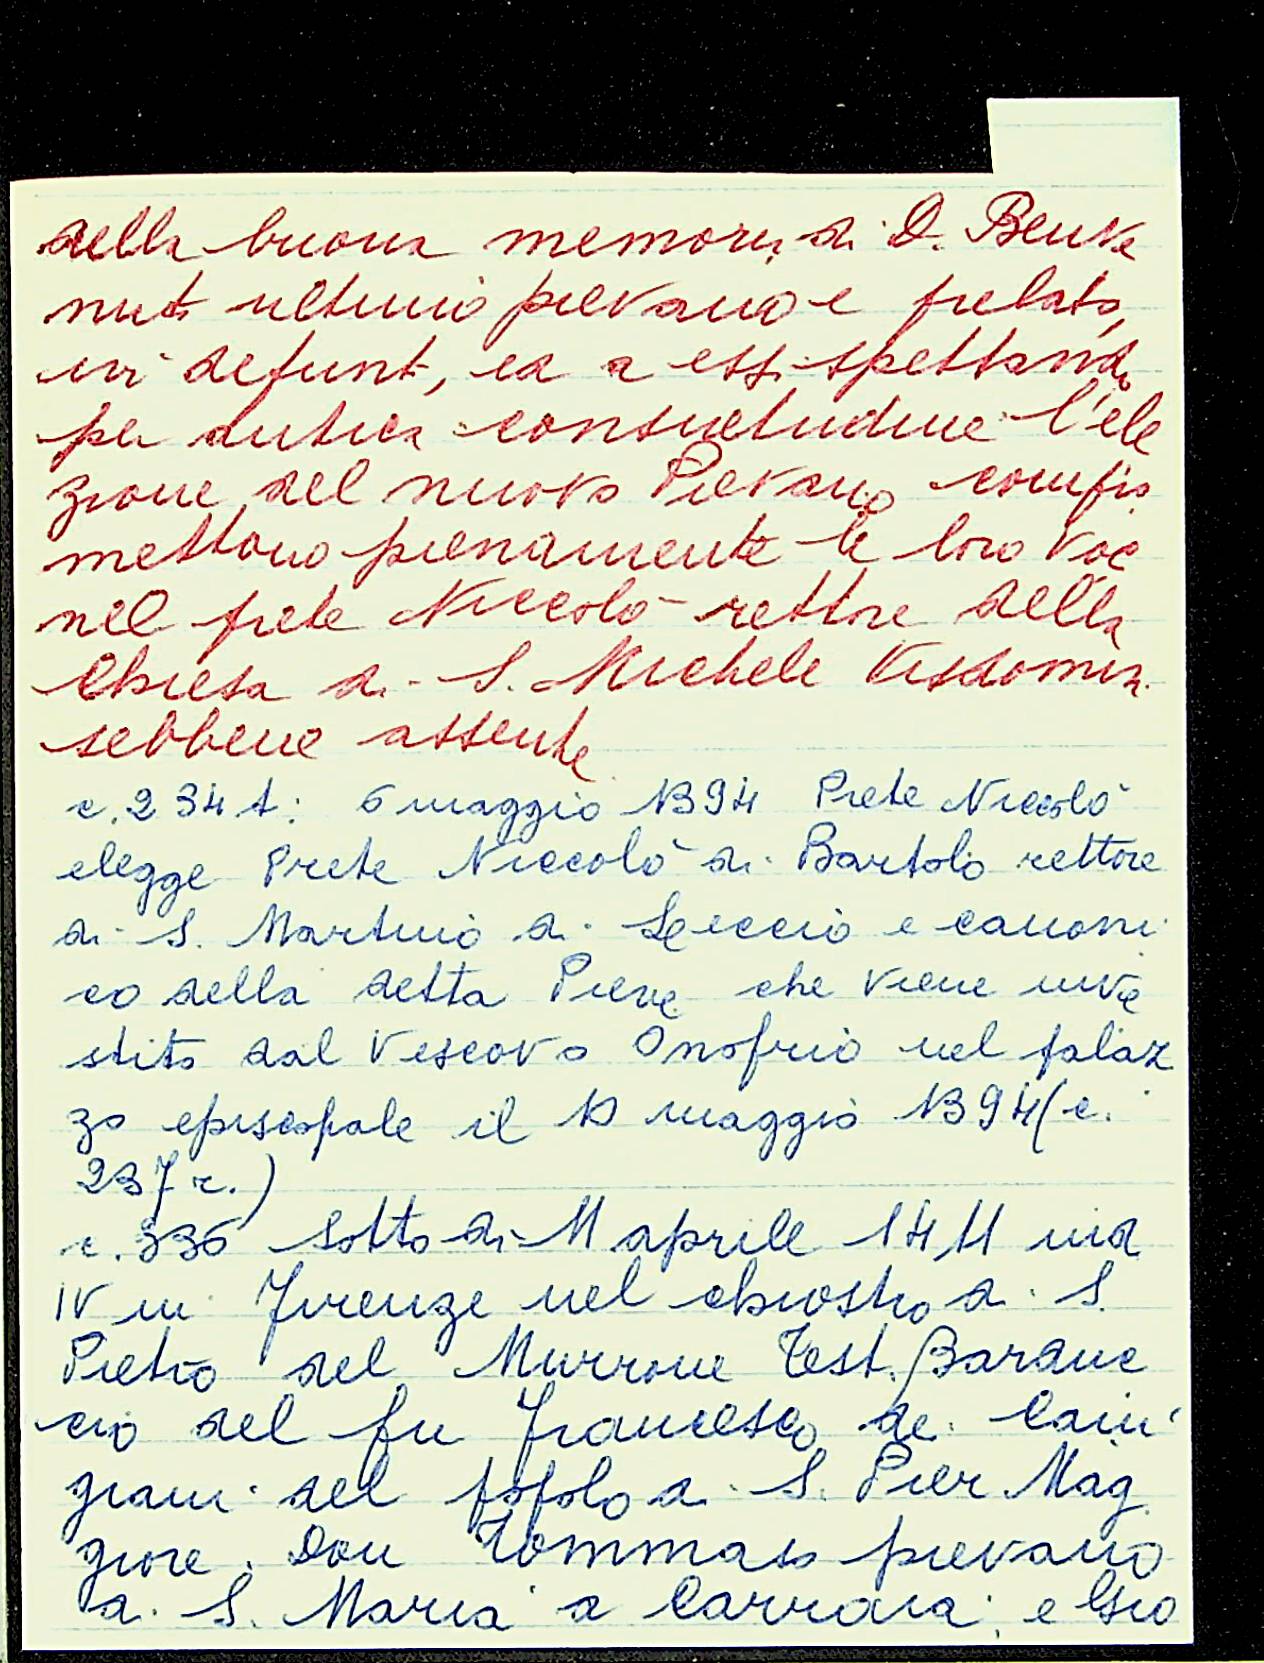 della buona memoria di D. Benve
nuti ultimo pievano e prelato
ivi defunto, ed a essi spettando
per antica consuetudine l'ele
zione del nuovo Pievano compro
mettono pienamente le loro voci
nel prete Niccolò rettore della
Chiesa di S. Michele Visdomini
sebbene assente
c. 234 t: 6 maggio 1394 Prete Niccolò
elegge Prete Niccolò di Bartolo rettore
di S. Martino di Leccio e canoni
co della detta Pieve che viene inve
stito dal Vescovo Onofrio nel palaz
zo episcopale il 10 maggio 1394 (c.
237 r.)
c. 336 Sotto dì 11 aprile 1411 ind
IV in Firenze nel chiostro di S.
Pietro del Murrone Test. Barduc
cio del fu Francesco de' Cani
giani del popolo di S. Pier Mag
giore. Don Tommaso pievano
di S. Maria a Carraia; e Gio